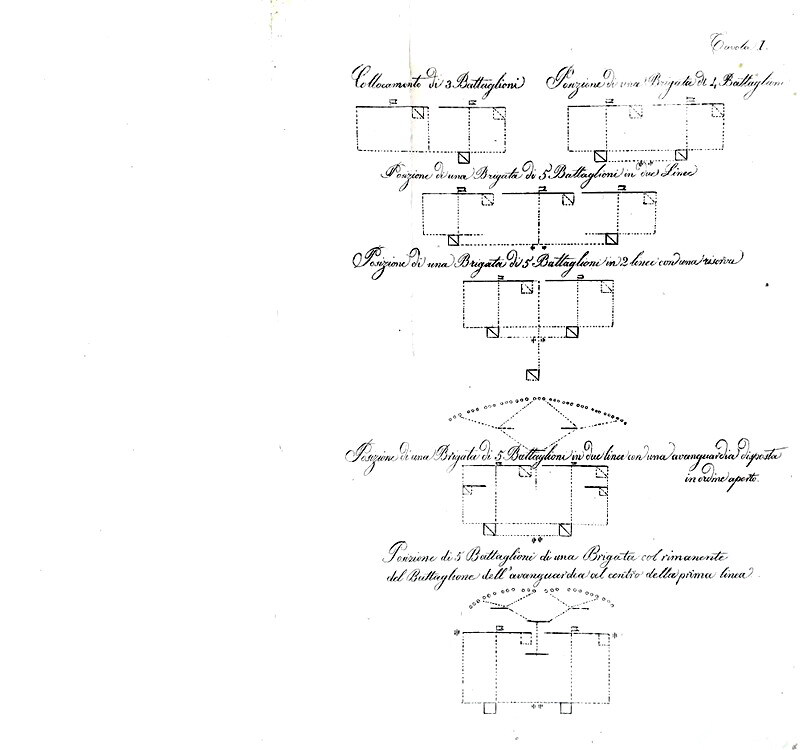 Tavola 1.
Collocamento di 3 Battaglioni
Posizione di una Brigata di 4 Battaglioni
Posizione di una Brigata di 5 Battaglioni in due Linee
Posizione di una Brigata di 5 Battaglioni in 2 linee con una riserva
Posizione di una Brigata di 5 Battaglioni in due linee con una avanguardia disposta
in ordine aperto.
Posizione di 5 Battaglioni di una Brigata col rimanente
del Battaglione dell'avanguardia al centro della prima linea.